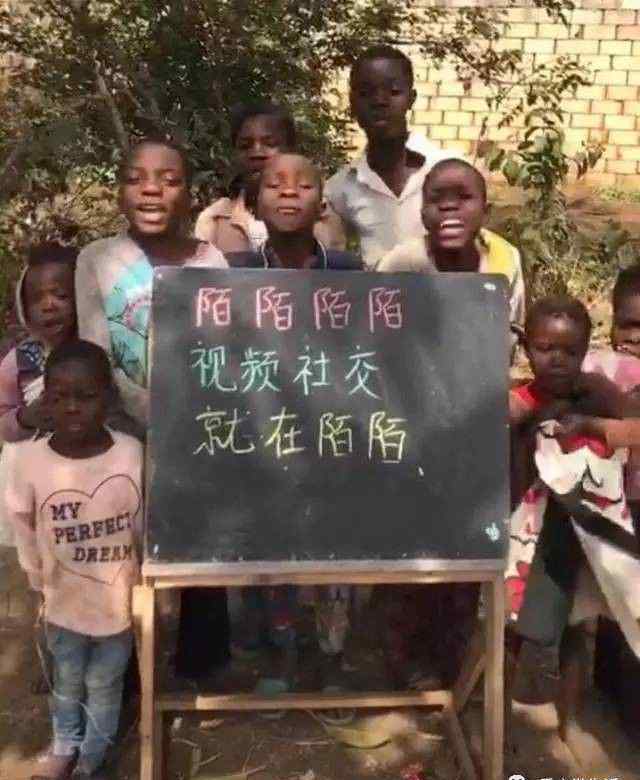 陌陌陌陌
视频社交
就在陌陌
MY
PERFECT
DREAM